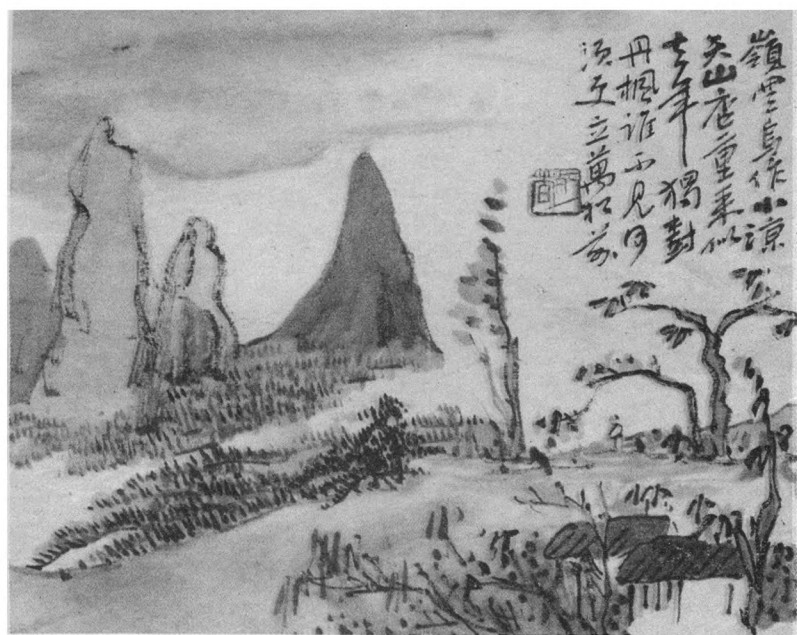 嶺雲為作小涼
天山店重來似
去年獨對
丹楓誰不見
須更立萬松前